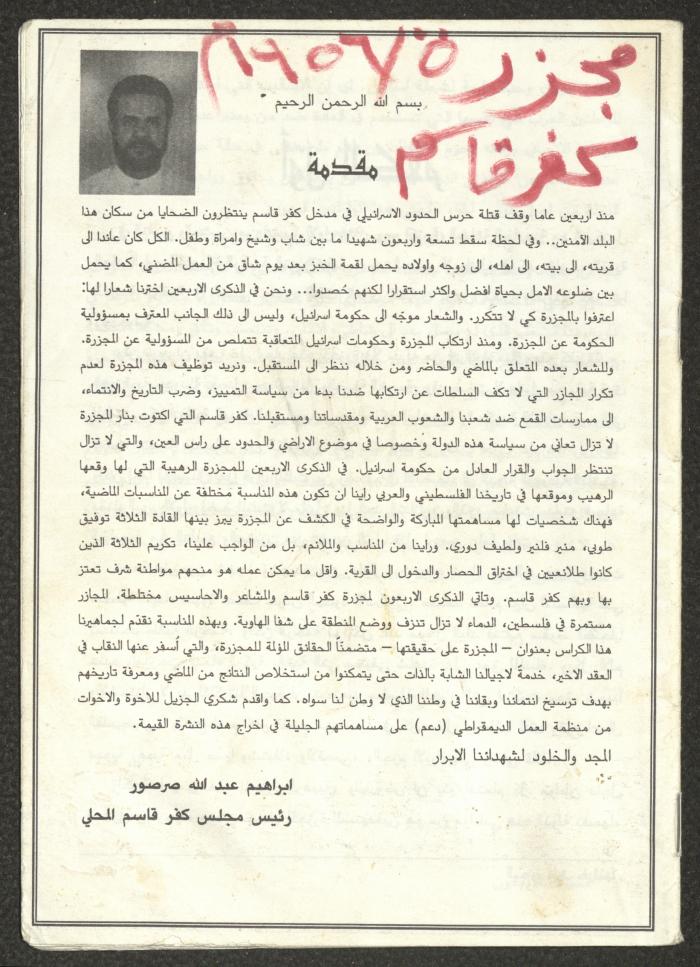 مجزر
كفر قاسم
بسم الله الرحمن الرحيم
مقدمة
منذ اربعين عاما وقف قتلة حرس الحدود الاسرائيلي في مدخل كفر قاسم ينتظرون الضحايا من سكان هذا
البلد الآمنين.. وفي لحظة سقط تسعة واربعون شهيدا ما بين شاب وشيخ وامراة وطفل. الكل كان عائدا الى
قريته، الى بيته، الى اهله، الى زوجه واولاده يحمل لقمة الخبز بعد يوم شاق من العمل المضني، كما يحمل
بين ضلوعه الامل بحياة افضل واكثر استقرارا لكنهم حُصدوا... ونحن في الذكرى الاربعين اخترنا شعارا لها:
اعترفوا بالمجزرة كي لا تتكرر. والشعار موجّه الى حكومة اسرائيل، وليس الى ذلك الجانب المعترف بمسؤولية
الحكومة عن المجزرة. ومنذ ارتكاب المجزرة وحكومات اسرائيل المتعاقبة تتملص من المسؤولية عن المجزرة.
وللشعار بعده المتعلق بالماضي والحاضر ومن خلاله ننظر الى المستقبل. ونريد توظيف هذه المجزرة لعدم
تكرار المجازر التي لا تكف السلطات عن ارتكابها ضدنا بدءا من سياسة التمييز، وضرب التاريخ والانتماء،
الى ممارسات القمع ضد شعبنا والشعوب العربية ومقدساتنا ومستقبلنا. كفر قاسم التي اكتوت بنار المجزرة
لا تزال تعاني من سياسة هذه الدولة وخصوصا في موضوع الاراضي والحدود على راس العين، والتي لا تزال
تنتظر الجواب والقرار العادل من حكومة اسرائيل. في الذكرى الاربعين للمجزرة الرهيبة التي لها وقعها
الرهيب وموقعها في تاريخنا الفلسطيني والعربي راينا ان تكون هذه المناسبة مختلفة عن المناسبات الماضية،
فهناك شخصيات لها مساهمتها المباركة والواضحة في الكشف عن المجزرة يبرز بينها القادة الثلاثة توفيق
طوبي، مئير فلنير ولطيف دوري. وراينا من المناسب والملائم، بل من الواجب علينا، تكريم الثلاثة الذين
كانوا طلائعيين في اختراق الحصار والدخول الى القرية. واقل ما يمكن عمله هو منحهم مواطنة شرف تعتز
بها وبهم كفر قاسم. وتاتي الذكرى الاربعون لمجزرة كفر قاسم والمشاعر والاحاسيس مختلطة. المجازر
مستمرة في فلسطين، الدماء لا تزال تنزف ووضع المنطقة على شفا الهاوية. وبهذه المناسبة نقدّم لجماهيرنا
هذا الكراس بعنوان – المجزرة على حقيقتها – متضمنًا الحقائق المؤلمة للمجزرة، والتي أسفر عنها النقاب في
العقد الاخير، خدمةً لاجيالنا الشابة بالذات حتى يتمكنوا من استخلاص النتائج من الماضي ومعرفة تاريخهم
بهدف ترسيخ انتمائنا وبقائنا في وطننا الذي لا وطن لنا سواه. كما واقدم شكري الجزيل للاخوة والاخوات
من منظمة العمل الديمقراطي (دعم) على مساهماتهم الجليلة في اخراج هذه النشرة القيمة.
المجد والخلود لشهدائنا الابرار
ابراهيم عبد الله صرصور
رئيس مجلس كفر قاسم المحلي